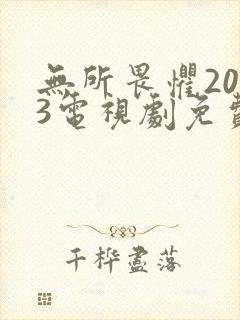 無所畏懼20
3電視劇免費
千樺盡落